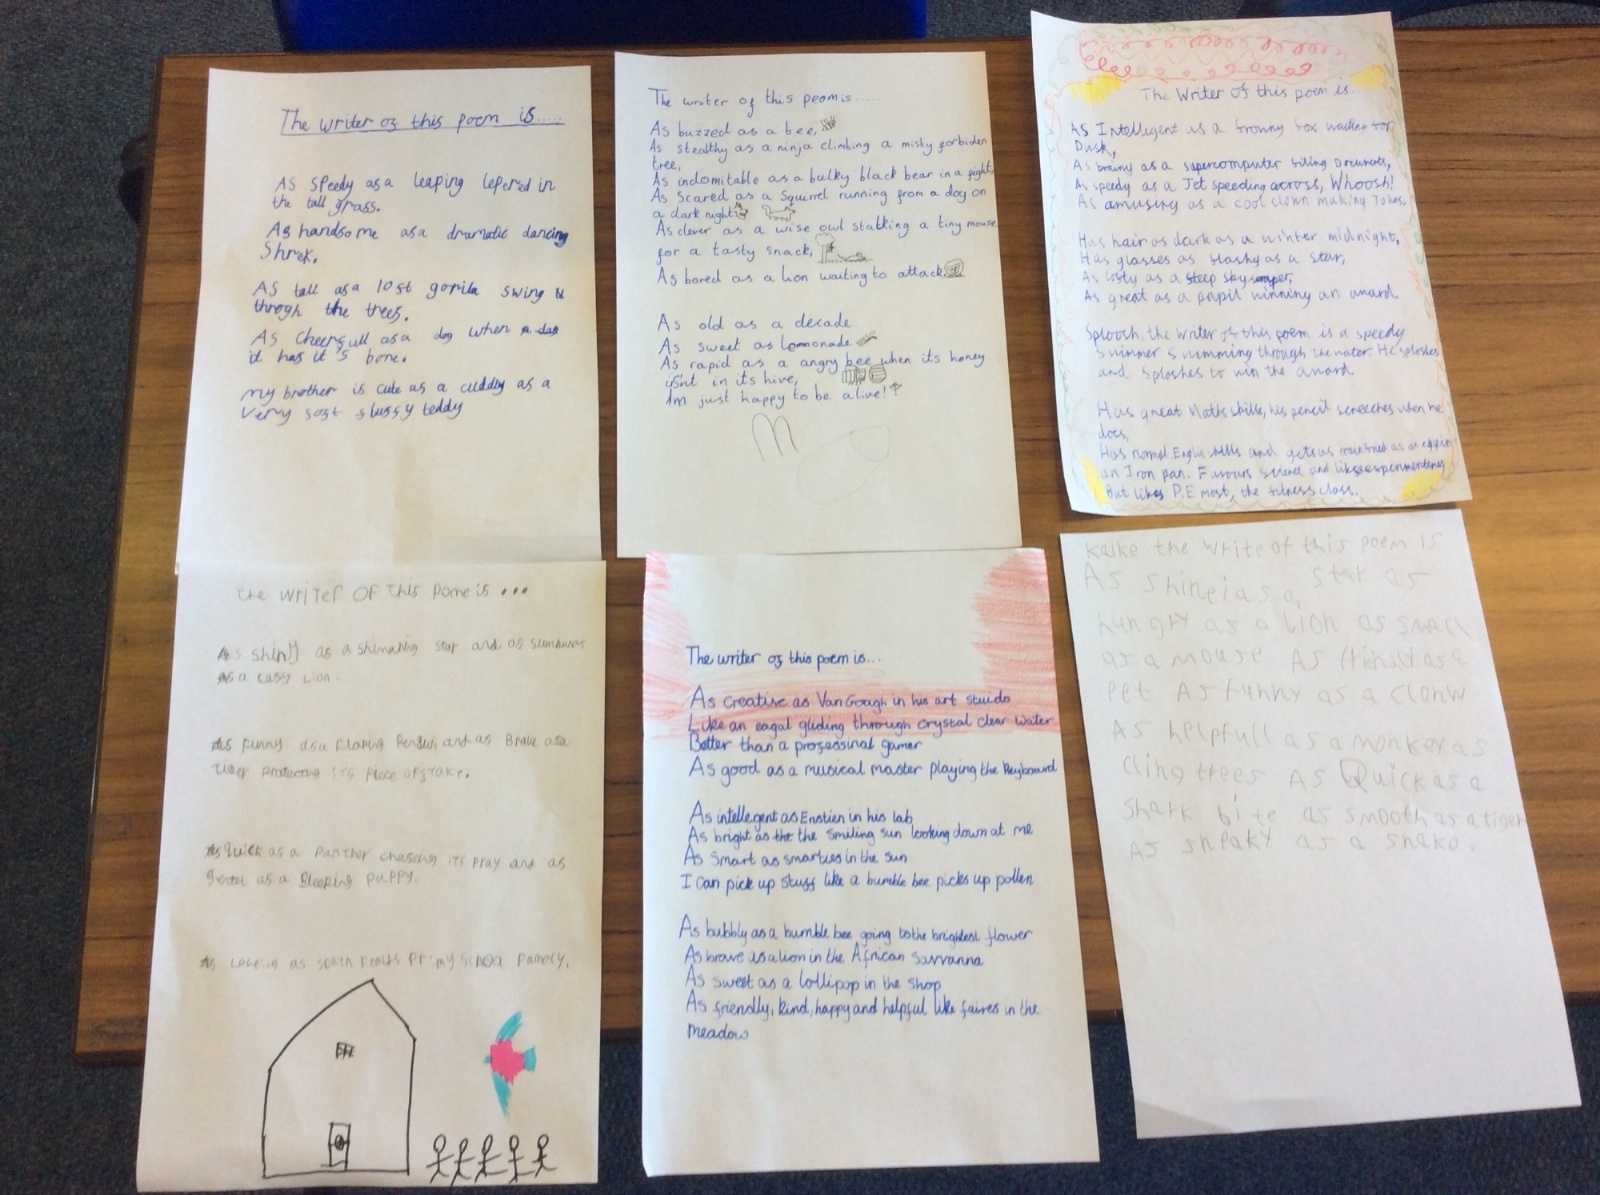 The writer of this poem is.....
As speedy as a leaping lepered in
the tall grass.
As handsome as a dramatic dancing
Shrek.
As tall as a lost gorila swing
throgh the trees.
As Cheerfull as a dog when
it has it's bone.
my brother is cute as a cuddly as a
very soft stuffy teddy
The writer of this peom is.....
As buzzed as a bee,
As stealthy as a ninja climbing a misty forbiden
tree,
As indomitable as a bulky black bear in a fight,
As Scared as a Squirrel running from a dog on
a dark night
As clever as a wise owl stalking a tiny mouse
for a tasty snack,
As bored as a Lion waiting to attack
As old as a decade
As sweet as lemonade
As rapid as a angry bee when its honey
isn't in its hive,
Im just happy to be alive!
The Writer of this poem is...
As Intelligent as a frowny fox waiting for
Dusk,
As brainy as a supercomputer filing Documents,
As speedy as a Jet speeding across, Whoosh!
As amusing as a cool clown making Jokes.
Has hair as dark as a winter midnight,
Has glasses as flashy as a star,
As lofty as a steep sky
As great as a pupil winning an award.
Splooch, the writer of this poem is a speedy
Swimmer Swimming through the water. He sploshes
and Sploshes to win the award.
Has great Maths skills, his pencil screeches when he
does,
Has normal English skills and gets as as an egg in
an Iron pan. Favours Science and likes experimenting
But likes P.E most, the fitness class.
the writer OF this Pome is...
As shiny as a shimaring star and as
As a Lion.
As funny as a and as Brave as a
tiger protecting its Piece of
As Quick as a Panther chasing its pray and as
gentel as a Sleeping puppy.
As as Family.
The writer of this poem is...
As creative as Van Gough in his art stuido
Like an eagal gliding through crystal clear water
Better than a professinal gamer
As good as a musical master playing the keyboard
As intellegent as Enstien in his lab
As bright as the the smiling sun looking down at me
As Smart as smarties in the sun
I can pick up stuff like a bumble bee picks up pollen
As bubbly as a bumble bee going to the brightest flower
As brave as a lion in the African Savranna
As sweet as a lollipop in the shop
As friendly, kind, happy and helpful like faires in the
meadow
the write of this Poem is
As shinei as a, star as
hungry as a lion as small
as a mouse As frindly as a
Pet As funny as a Clonw
As helpfull as a monkey as
cling trees As Quick as a
Shark bite as smooth as a tiger
As sneaky as a snake.